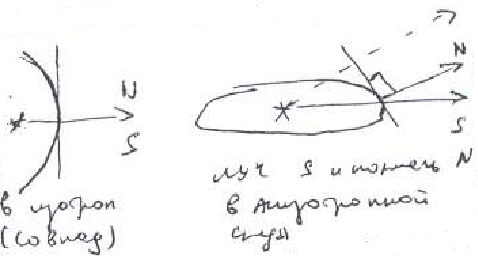 N
S
N
S
в изотроп
(совпад)
луч S и нормаль N
в анизотропной
среде